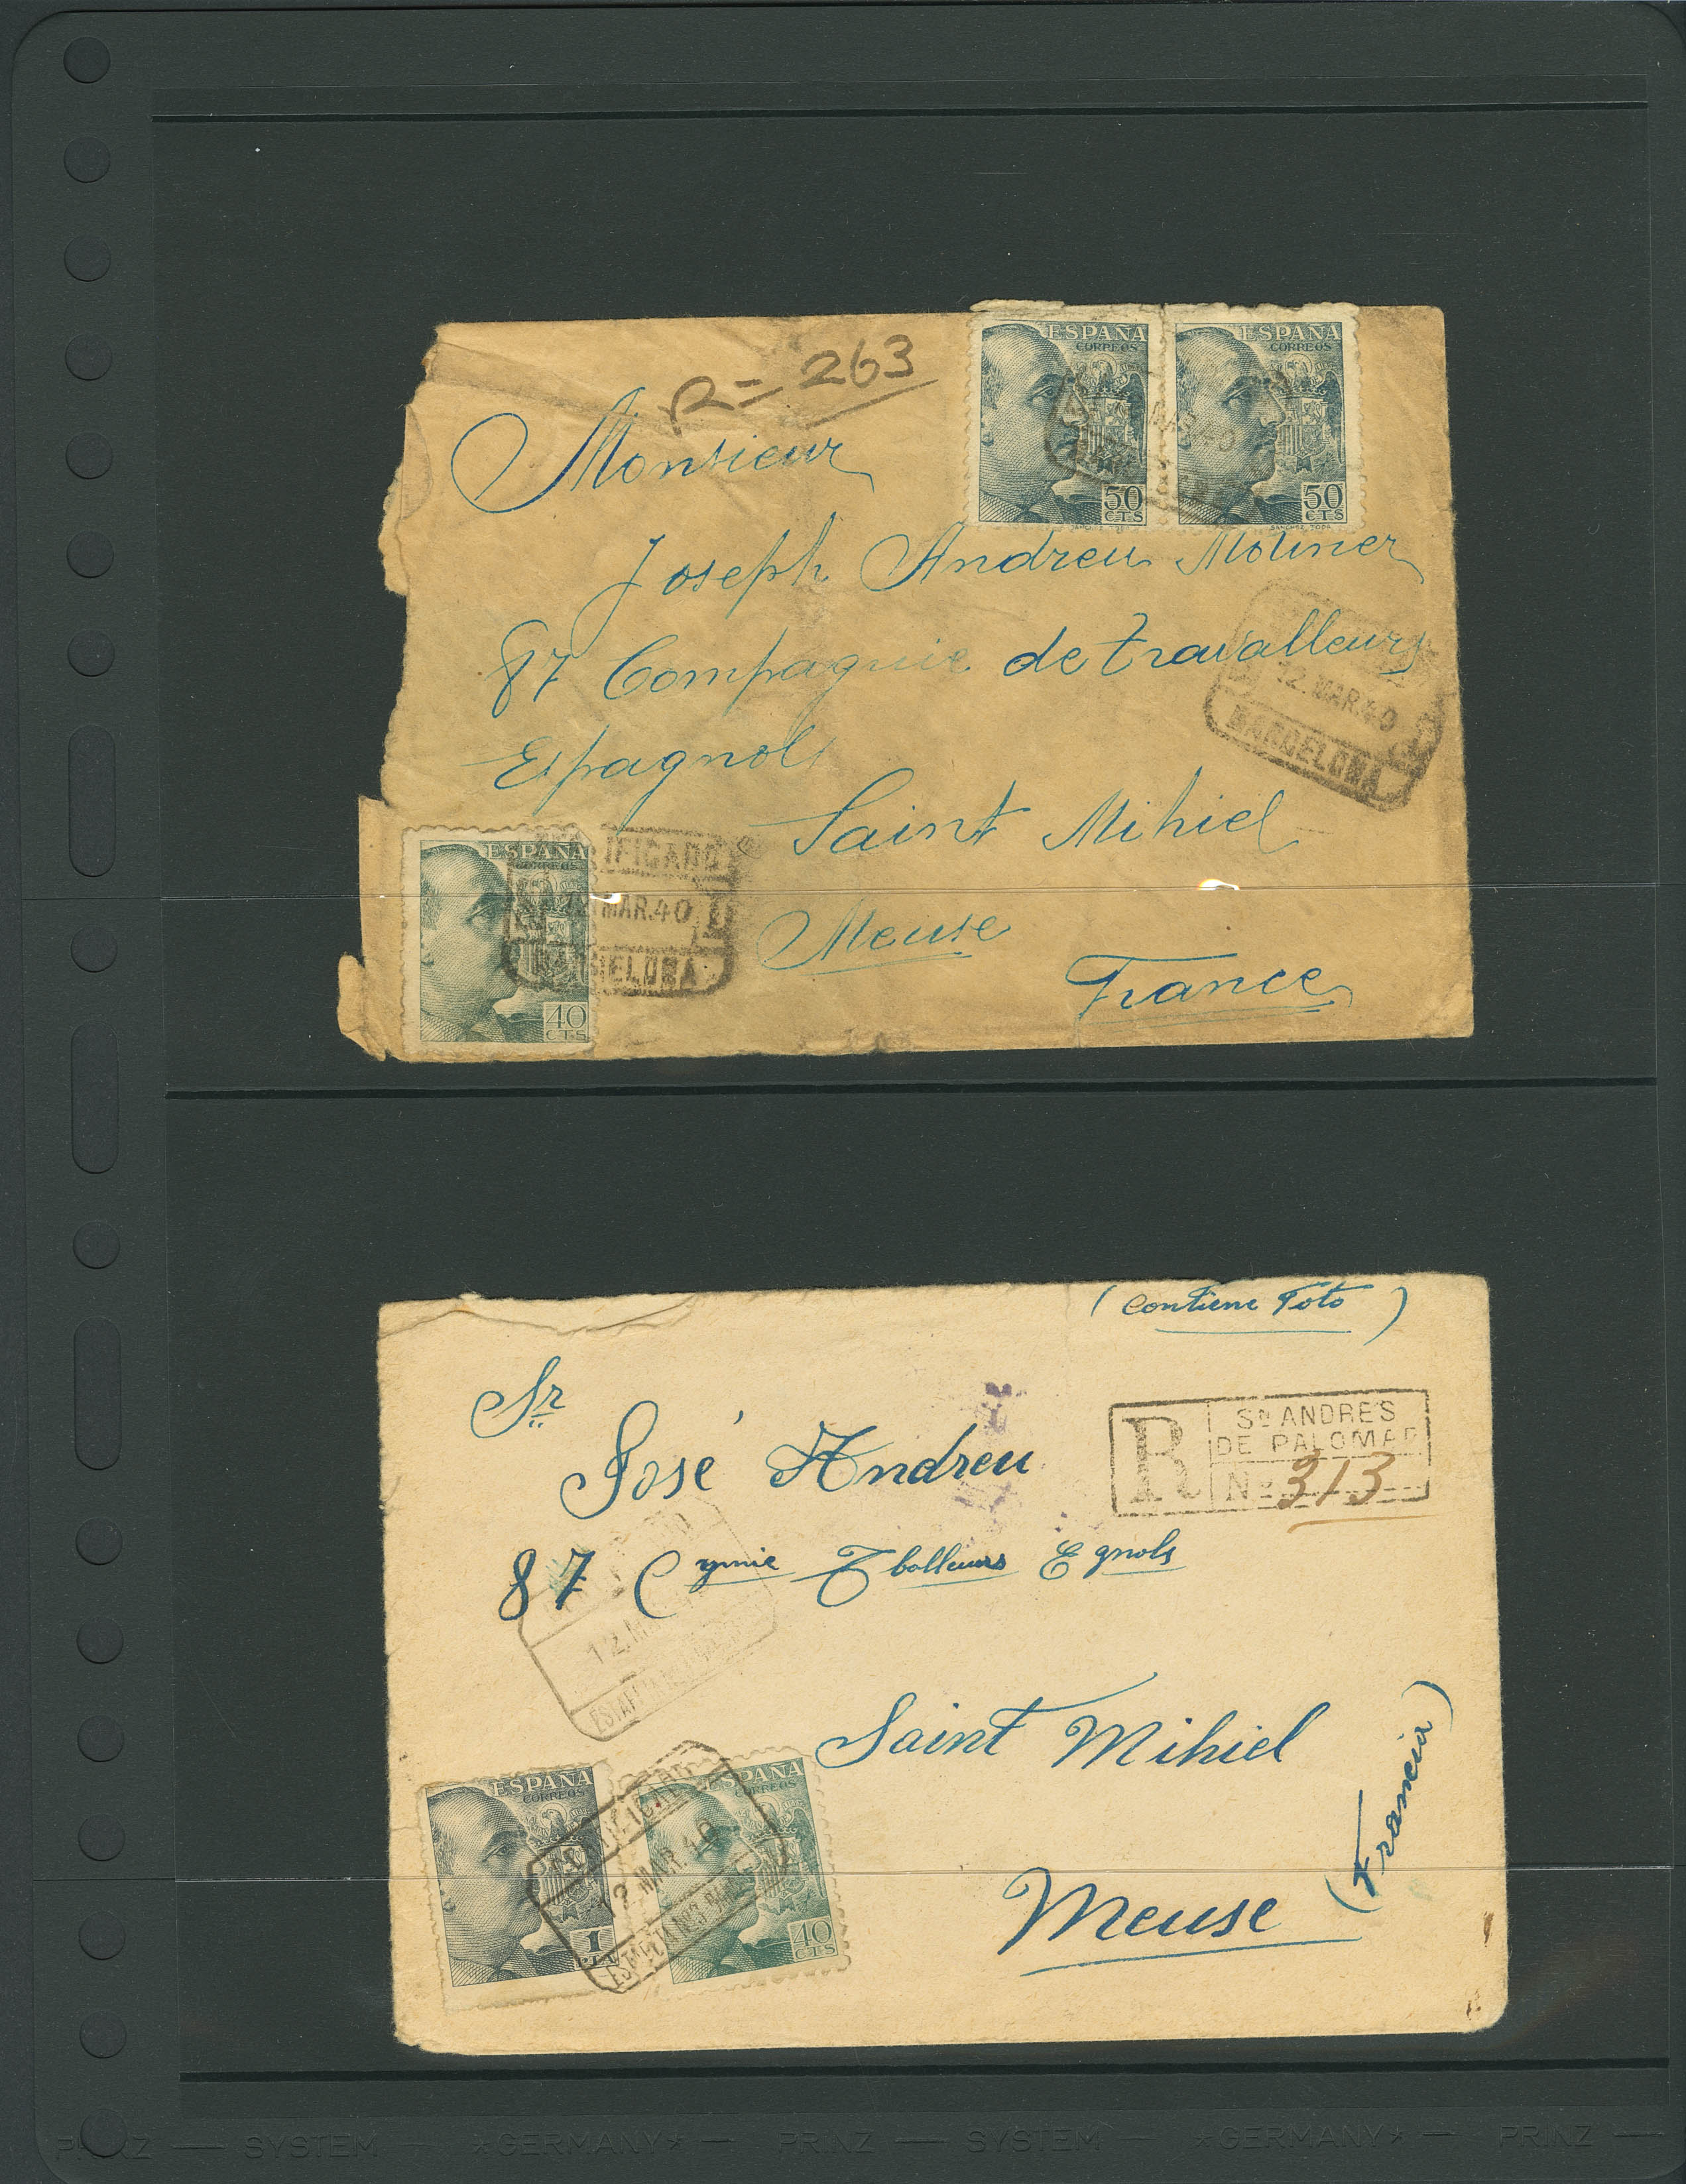 R= 263
ESPAÑA
CORREOS
50
CTS
SANCHEZ TODA
ESPAÑA
CORREOS
50
CTS
SANCHEZ TODA
Monsieur
Joseph Andreu Moliner
87 Compagnie de travalleurs
12.MAR.40
BARCELONA
Espagnols
Saint Mihiel
ESPAÑA
CORREOS
40
CTS
CERTIFICADO
12.MAR.40
BARCELONA
Meuse
France
(Contiene Foto)
Sr
José Andreu
R
Sn ANDRES
DE PALOMAR
Nº 313
87 Cgnie Tballeurs Egnols
12.MAR.40
Saint Mihiel
(Francia)
ESPAÑA
CORREOS
1
PTA
ESPAÑA
CORREOS
40
CTS
CERTIFICADO
12.MAR.40
Meuse
PRINZ — SYSTEM — *GERMANY* — PRINZ — SYSTEM — *GERMANY* — PRINZ —